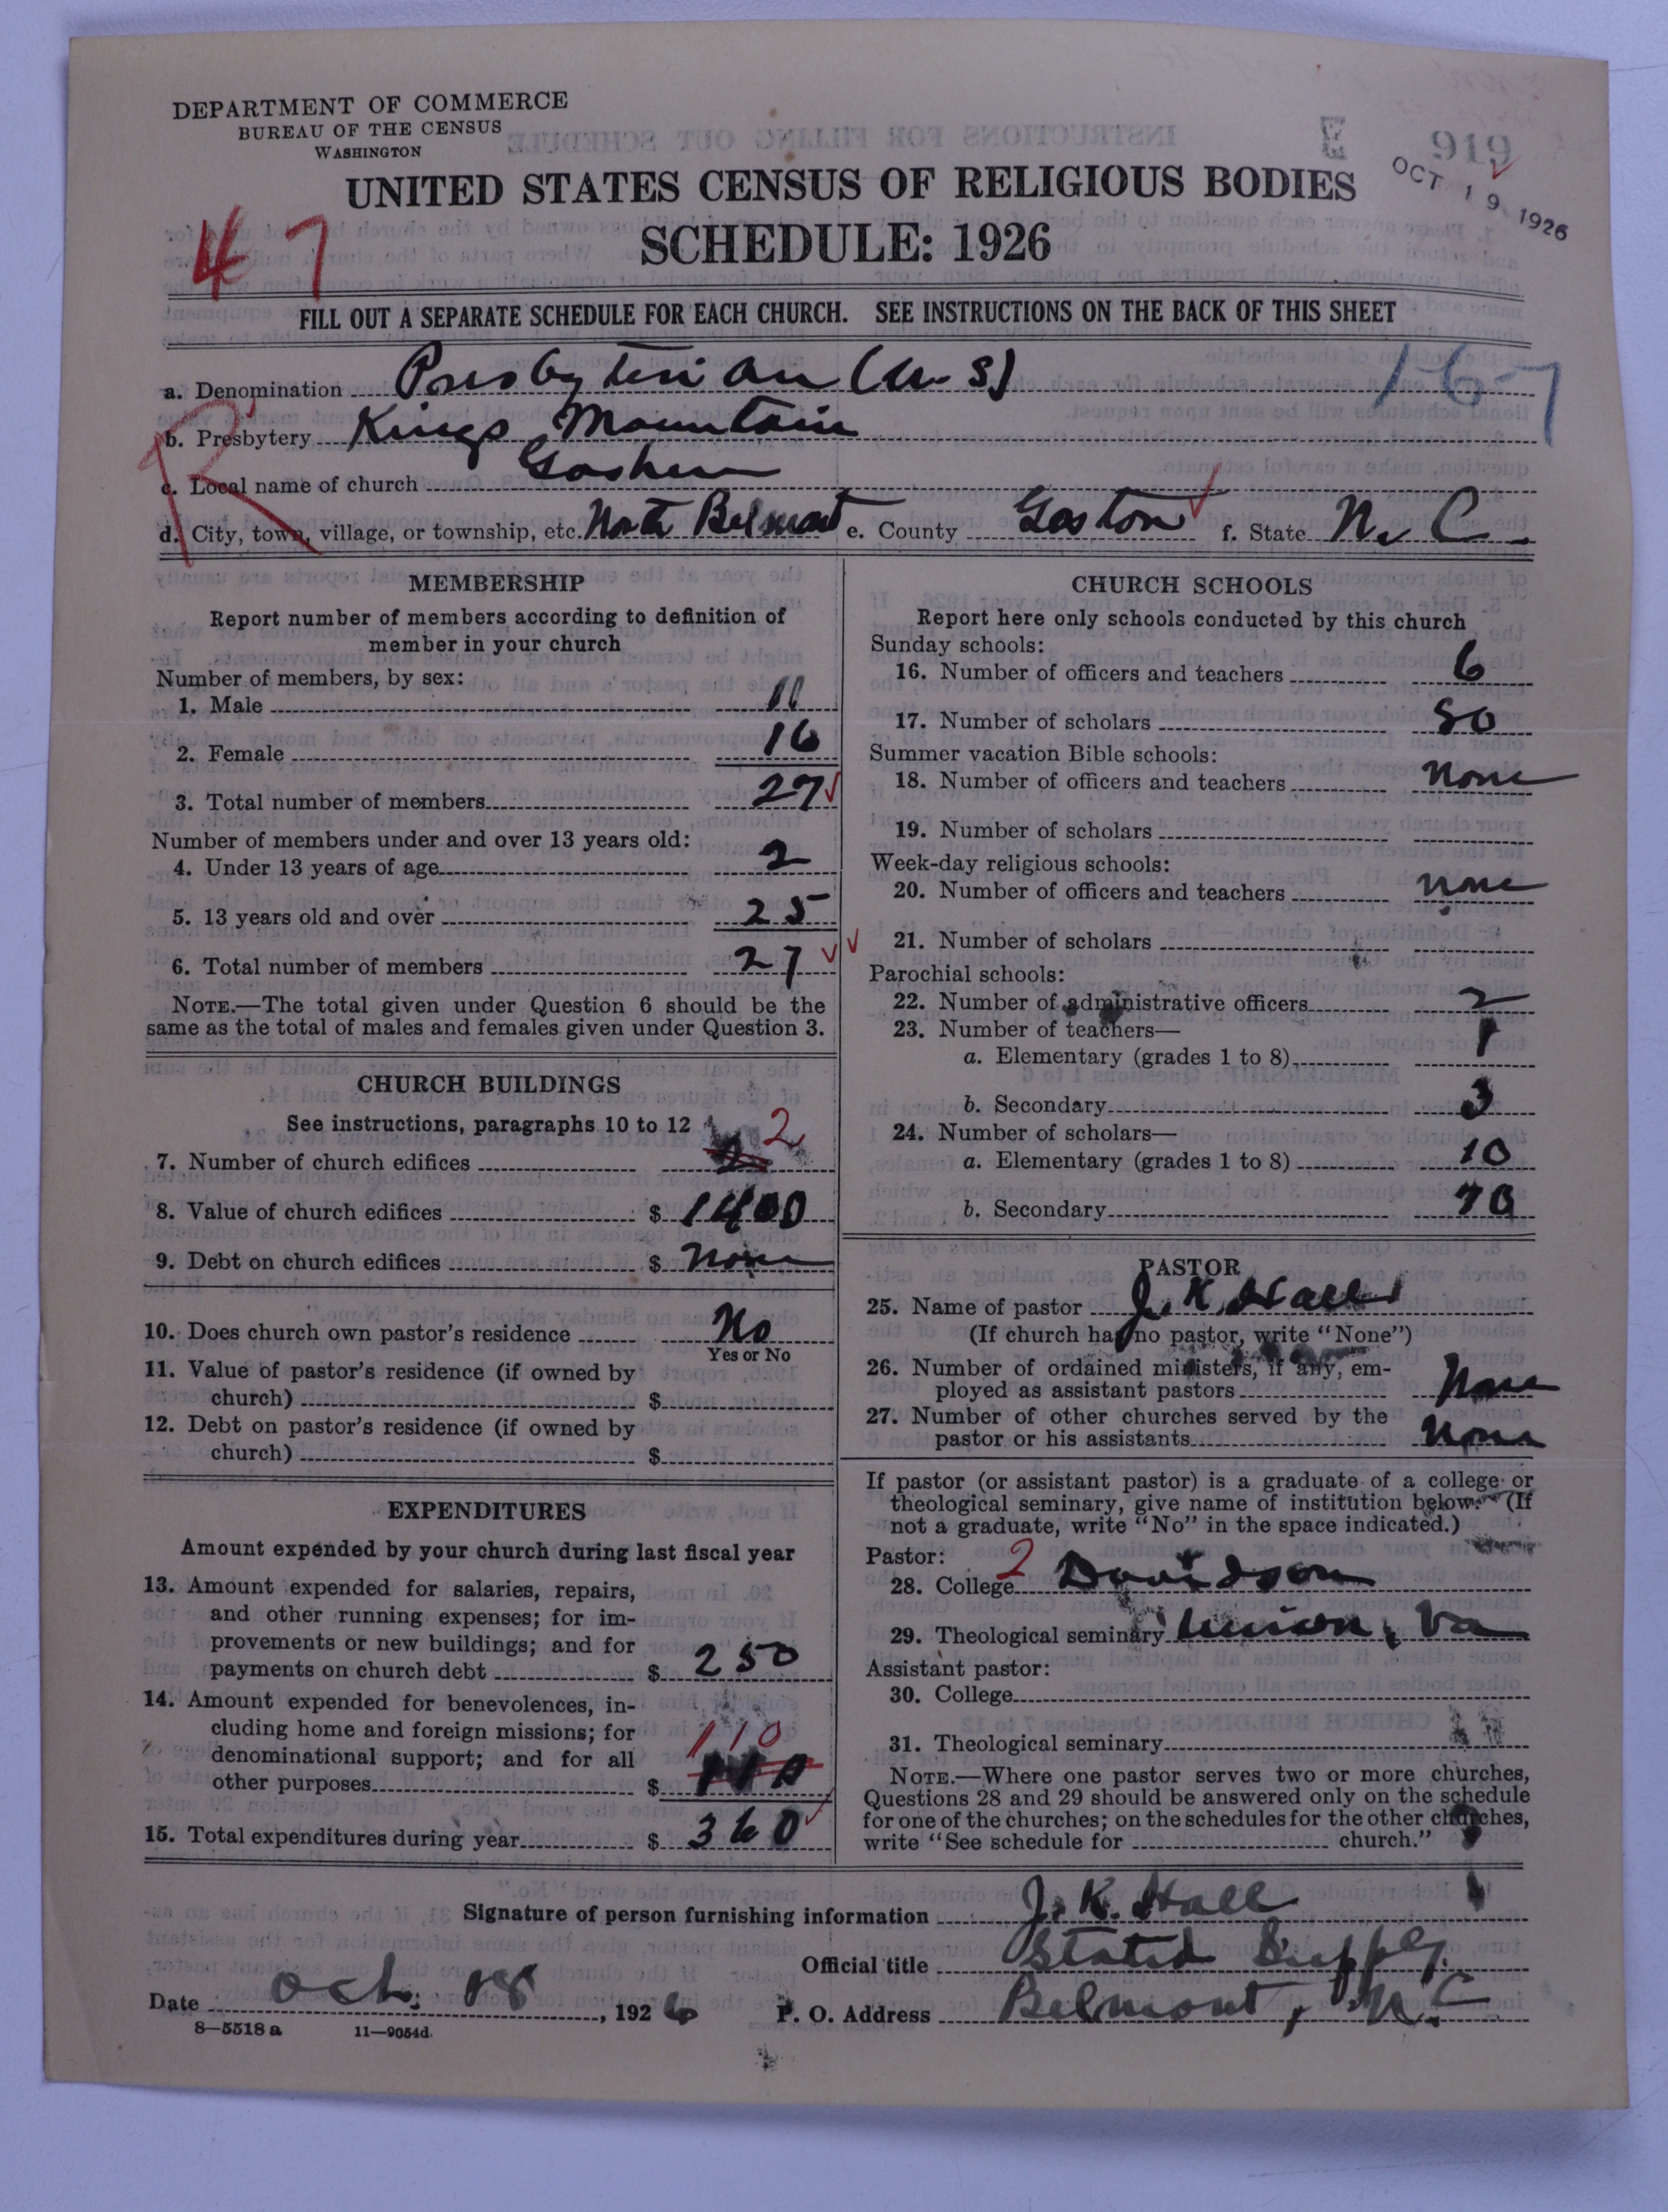 DEPARTMENT OF COMMERCE
BUREAU OF THE CENSUS
WASHINGTON
919
OCT 19 1926
UNITED STATES CENSUS OF RELIGIOUS BODIES
SCHEDULE: 1926
47
FILL OUT A SEPARATE SCHEDULE FOR EACH CHURCH. SEE INSTRUCTIONS ON THE BACK OF THIS SHEET
a. Denomination Presbyterian (U.S) 16-7
b. Presbytery Kings Mountain
c. Local name of church Goshen
R
d. City, town, village, or township, etc. North Belmont e. County Gaston f. State N. C.
MEMBERSHIP
Report number of members according to definition of
member in your church
Number of members, by sex:
1. Male 11
2. Female 16
3. Total number of members 27
Number of members under and over 13 years old:
4. Under 13 years of age 2
5. 13 years old and over 25
6. Total number of members 27
NOTE.—The total given under Question 6 should be the
same as the total of males and females given under Question 3.
CHURCH BUILDINGS
See instructions, paragraphs 10 to 12
7. Number of church edifices 2
8. Value of church edifices $ 1400
9. Debt on church edifices $ None
10. Does church own pastor's residence No
Yes or No
11. Value of pastor's residence (if owned by
church) $
12. Debt on pastor's residence (if owned by
church) $
EXPENDITURES
Amount expended by your church during last fiscal year
13. Amount expended for salaries, repairs,
and other running expenses; for im-
provements or new buildings; and for
payments on church debt $ 250
14. Amount expended for benevolences, in-
cluding home and foreign missions; for
denominational support; and for all 110
other purposes $ 110
15. Total expenditures during year $ 360
CHURCH SCHOOLS
Report here only schools conducted by this church
Sunday schools:
16. Number of officers and teachers 6
17. Number of scholars 50
Summer vacation Bible schools:
18. Number of officers and teachers None
19. Number of scholars
Week-day religious schools:
20. Number of officers and teachers None
21. Number of scholars
Parochial schools:
22. Number of administrative officers 2
23. Number of teachers—
a. Elementary (grades 1 to 8) 1
b. Secondary 3
24. Number of scholars—
a. Elementary (grades 1 to 8) 10
b. Secondary 70
PASTOR
25. Name of pastor J. K. Hall
(If church has no pastor, write "None")
26. Number of ordained ministers, if any, em-
ployed as assistant pastors None
27. Number of other churches served by the
pastor or his assistants None
If pastor (or assistant pastor) is a graduate of a college or
theological seminary, give name of institution below. (If
not a graduate, write "No" in the space indicated.)
Pastor: 2
28. College Davidson
29. Theological seminary Union, Va
Assistant pastor:
30. College
31. Theological seminary
NOTE.—Where one pastor serves two or more churches,
Questions 28 and 29 should be answered only on the schedule
for one of the churches; on the schedules for the other churches,
write "See schedule for church."
Signature of person furnishing information J. K. Hall
Official title Stated Supply
Date Oct. 18, 1926 P. O. Address Belmont, N.C
8—5518 a 11—9054d